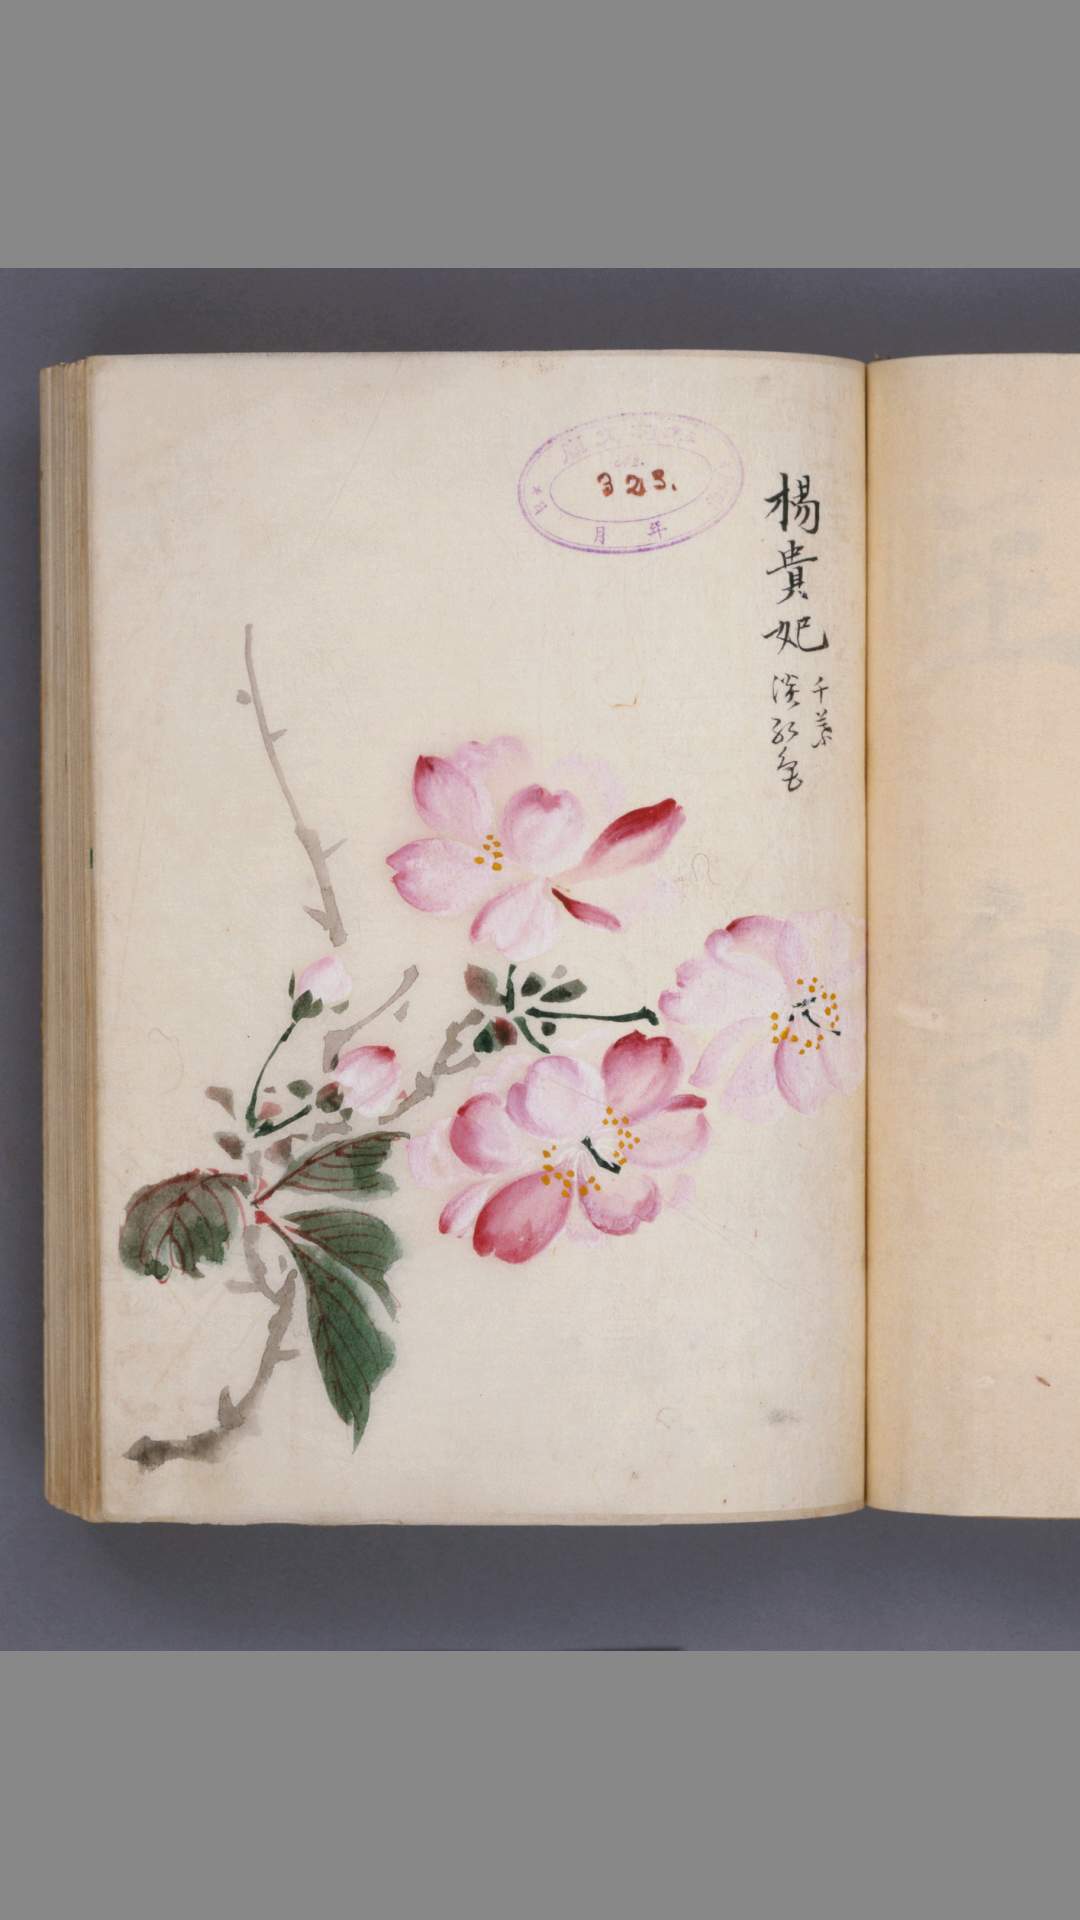 楊貴妃
千葉
淡紅色
323.
年
月